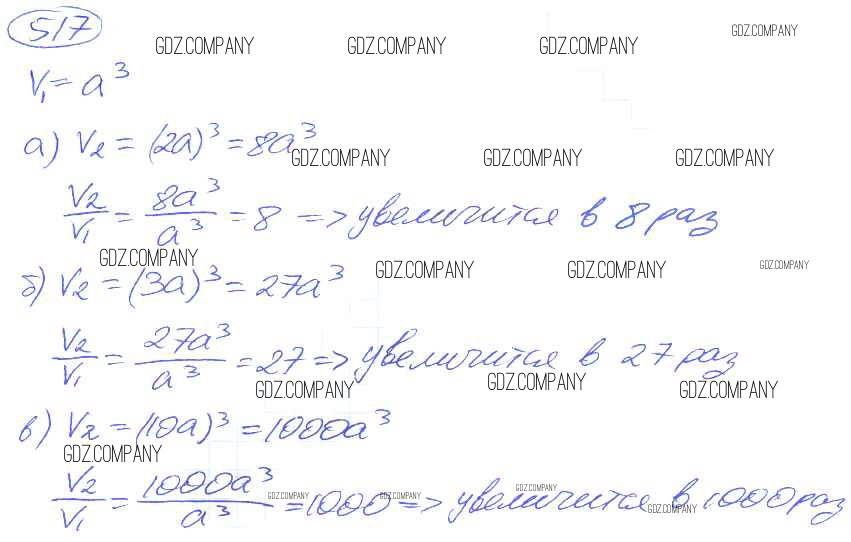 517
GDZ.COMPANY GDZ.COMPANY GDZ.COMPANY GDZ.COMPANY
V₁ = a³
а) V₂ = (2a)³ = 8a³
GDZ.COMPANY GDZ.COMPANY GDZ.COMPANY
V₂/V₁ = 8a³/a³ = 8 => увеличится в 8 раз
GDZ.COMPANY GDZ.COMPANY GDZ.COMPANY GDZ.COMPANY
б) V₂ = (3a)³ = 27a³
V₂/V₁ = 27a³/a³ = 27 => увеличится в 27 раз
GDZ.COMPANY GDZ.COMPANY GDZ.COMPANY
в) V₂ = (10a)³ = 1000a³
GDZ.COMPANY
V₂/V₁ = 1000a³/a³ = 1000 => увеличится в 1000 раз
GDZ.COMPANY GDZ.COMPANY GDZ.COMPANY GDZ.COMPANY